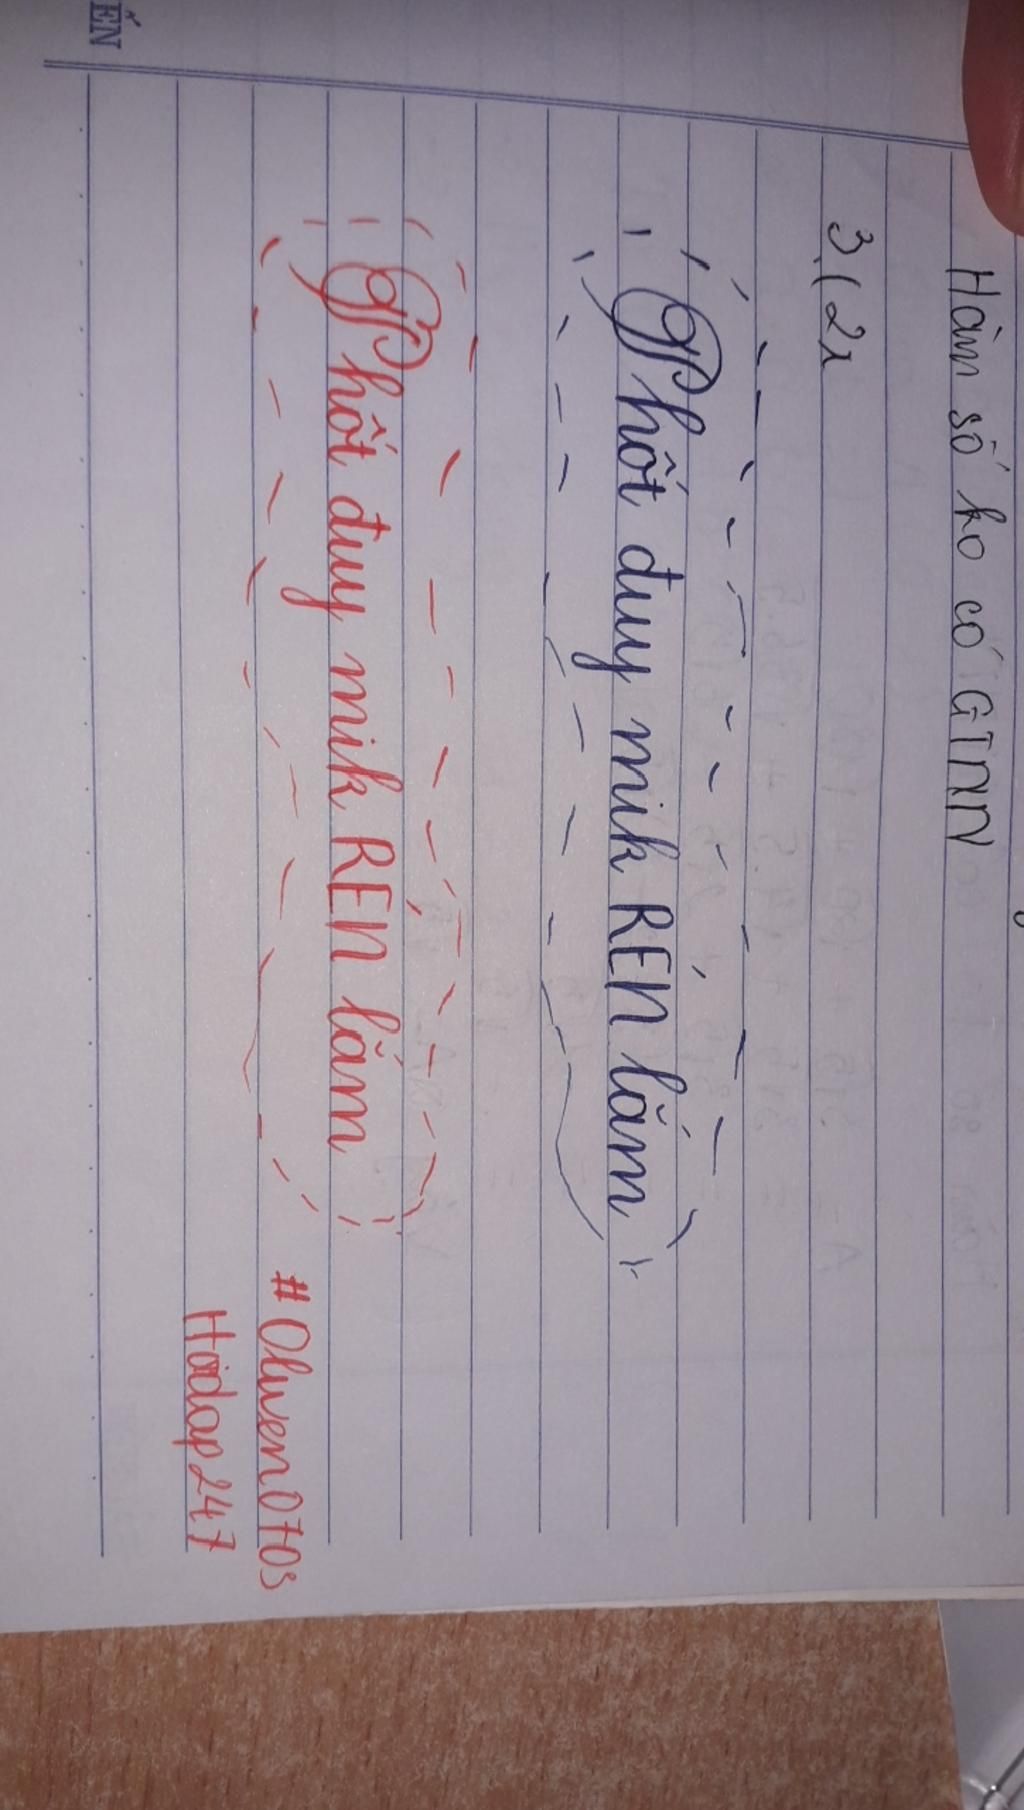 Hàm số ko có GTNN
3(2x
Phốt đuy mik RÉN lắm
Phốt đuy mik RÉN lắm
#Olwen0703
Hoidap247